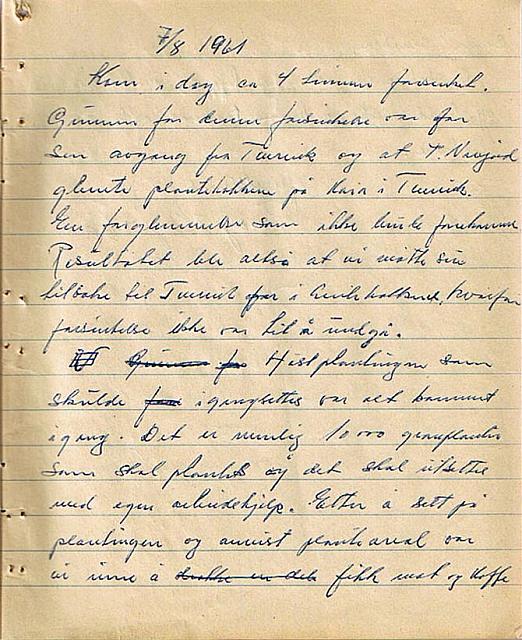 7/8 1961
Kom i dag ca 4 timer forsinket.
Grunnen for denne forsinkelse var for
sen avgang fra Tunnsk og at T. Navjord
glemte plantehakkene på kaia i
En forglemmelse som ikke burde forekomme
Resultatet ble altså at vi måtte
tilbake til hvorfor
forsinkelse ikke var til å unngå.
Grunnen for Høstplantingen som
skulde for igangsettes var alt kommet
igang. Det er nemlig 10000 granplanter
som skal plantes og det skal utsettes
med egen arbeidshjelp. Etter å sett på
plantingen og anvist planteareal var
vi inne å drakk en del fikk mat og kaffe